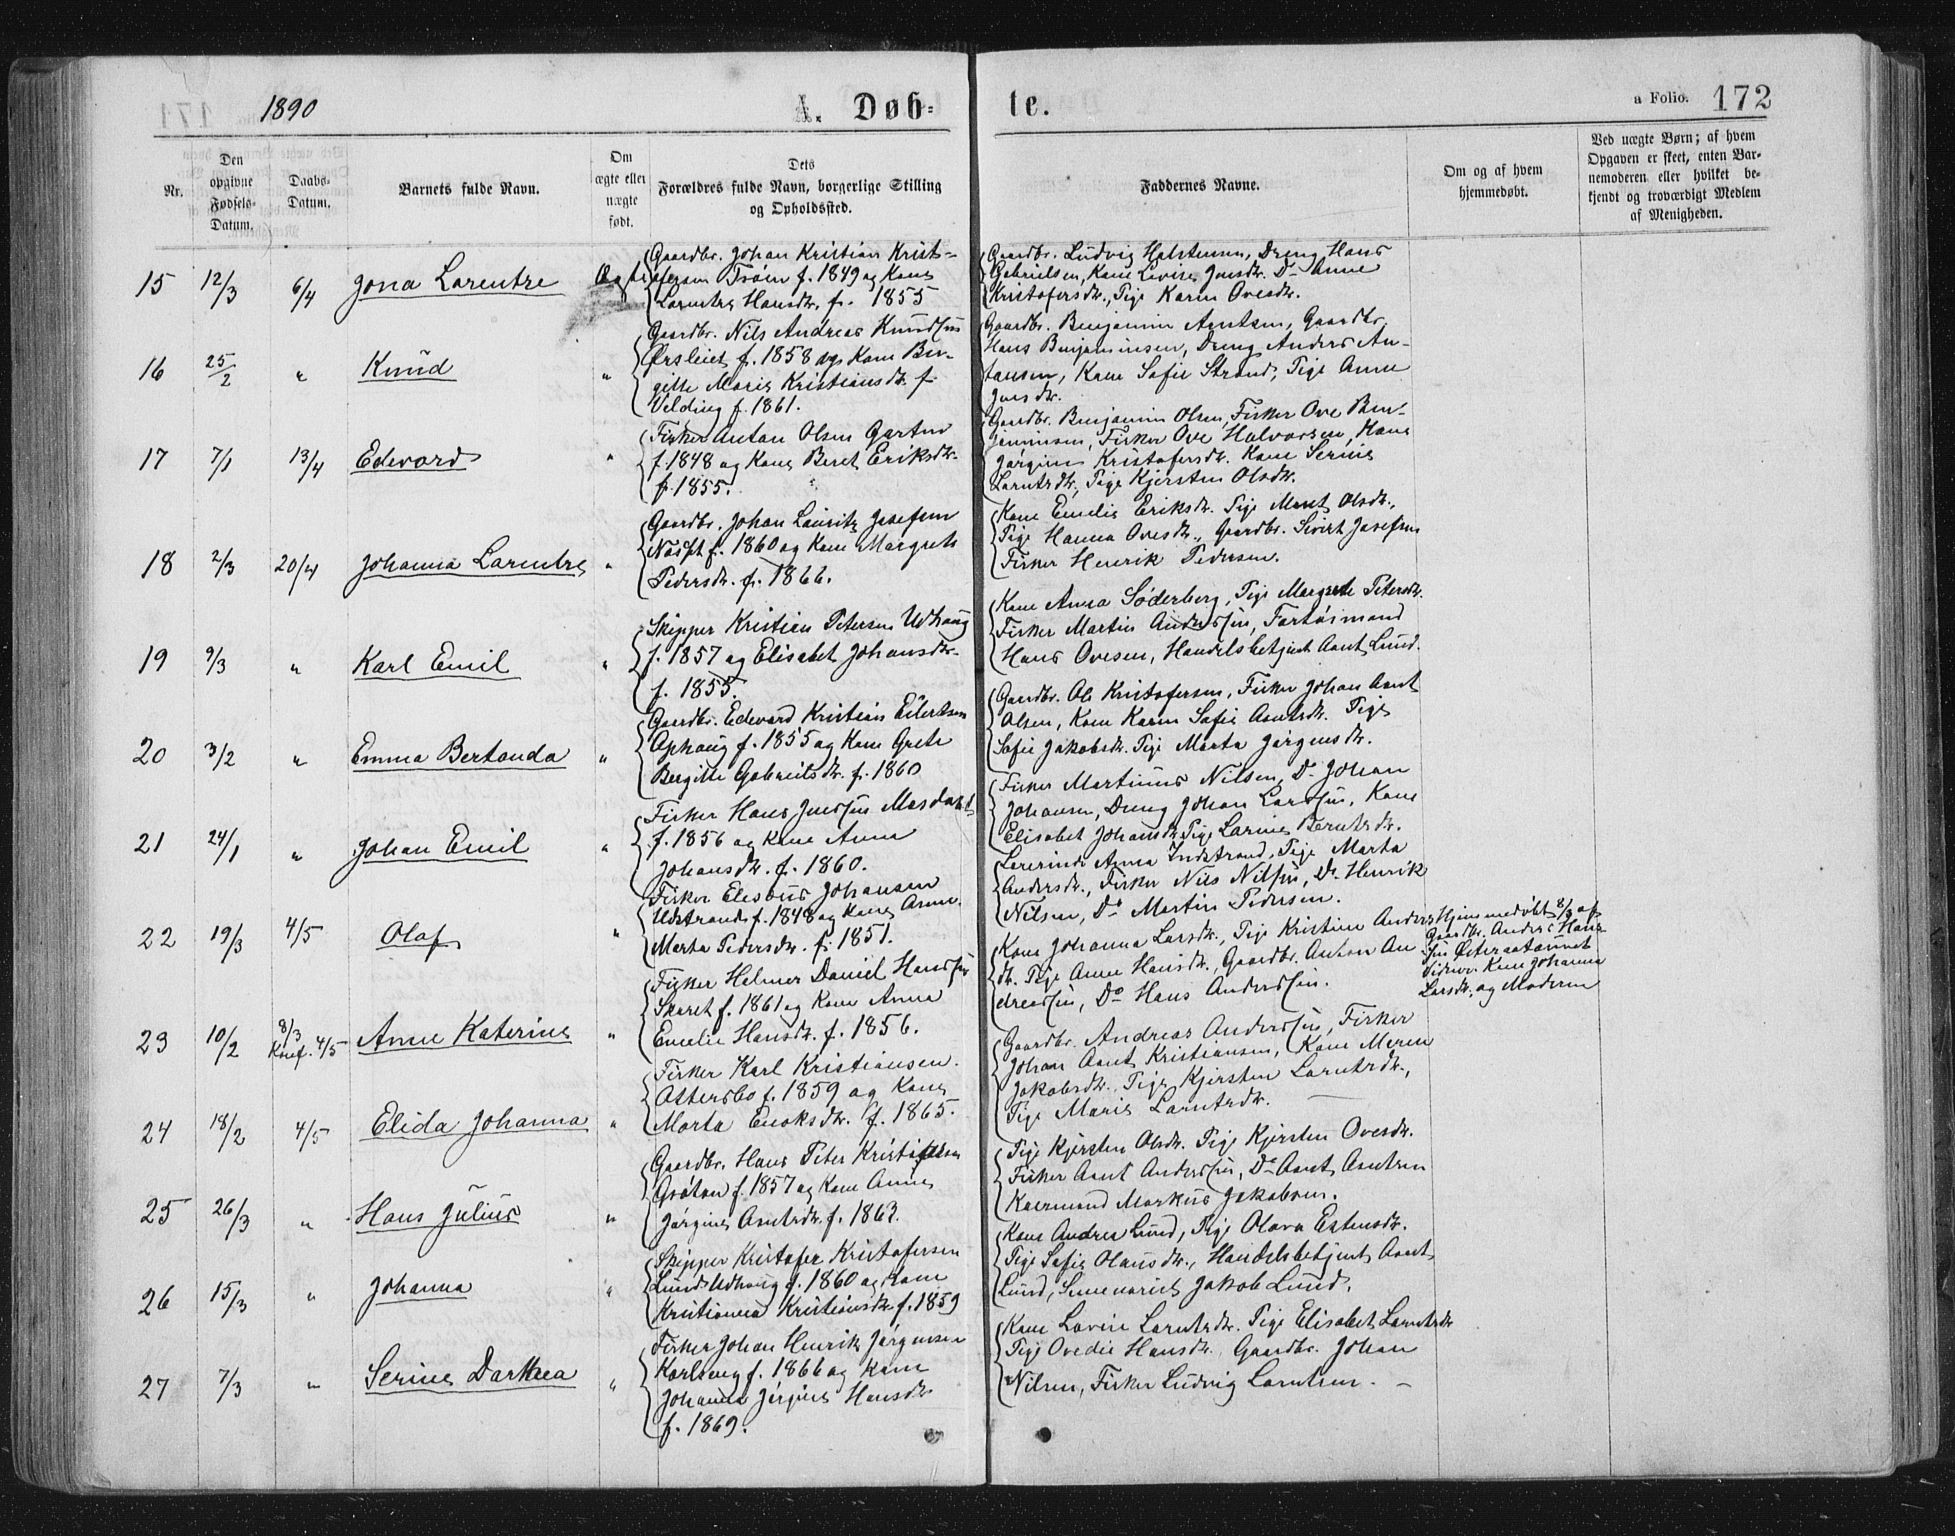 1890
A. Døb-
te.
a Folio. 172
Nr.
Den opgivne Fødsels-Datum.
Daabs-Datum.
Barnets fulde Navn.
Om ægte eller uægte født.
Dets Forældres fulde Navn, borgerlige Stilling og Opholdssted.
Faddernes Navne.
Om og af hvem hjemmedøbt.
Ved uægte Børn; af hvem Opgaven er skeet, enten Barnemoderen eller hvilket bekjendt og troværdigt Medlem af Menigheden.
15 12/3 6/4 Jona Larentze Ægte
Gaardbr. Johan Kristian Krist-
ofersen Trøen f. 1849 og Kone
Larentze Hansdtr. f. 1855
Gaardbr. Ludvig Halstensen, Dreng Hans
Gabrielsen, Kone Lovise Jensdtr. Do Anne
Kristofersdtr., Pige Karen Ovesdtr.
16 25/2 " Knud "
Gaardbr. Nils Andreas Knudsen
Ørsleiet f. 1858 og Kone Bir-
gitte Marie Kristiansdtr. f.
Velding f. 1861.
Gaardbr. Benjamin Arntsen, Gaardbr.
Hans Benjaminsen, Dreng Anders An-
tonsen, Kone Sofie Strand, Pige Anne
Jensdtr.
17 7/1 13/4 Edevard "
Fisker Anton Olsen Garten
f. 1848 og Kone Beret Eriksdtr.
f. 1855.
Gaardbr. Benjamin Olsen, Fisker Ove Ben-
jaminsen, Fisker Ove Halvorsen, Kone
Jørgine Kristofersdtr. Kone Serine
Larntzdtr, Pige Kjersten Olsdtr.
18 2/3 20/4 Johanna Larentze "
Gaardbr. Johan Lauritz Josefsen
f. 1860 og Kone Margrete
Pedersdtr. f. 1866.
Kone Emelie Eriksdtr. Pige Marit Olsdtr.,
Pige Hanna Ovesdtr., Gaardbr. Sivert Josefsen
Fisker Henrik Pedersen.
19 9/3 " Karl Emil "
Skipper Kristian Petersen Udhaug
f. 1857 og Elisabet Johansdtr.
f. 1855.
Kone Anna Söderberg, Pige Margrete Petersdtr.
Fisker Martin Anderssen, Fartøimand
Hans Ovesen, Handelsbetjent Arnt Lund.
20 3/2 " Emma Bertanda "
Gaardbr. Edevard Kristian Eilertsen
Ophaug f. 1855 og Kone Grete
Bergitte Gabrielsdtr. f. 1860
Gaardbr. Ole Kristofersen, Fisker Johan Arnt
Olsen, Kone Karen Sofie Arntsdtr. Pige
Sofie Jakobsdtr. Pige Marta Jørgensdtr.
21 24/1 " Johan Emil "
Fisker Hans Jenssen
f. 1856 og Kone Anna
Johansdtr. f. 1860.
Fisker Martinus Nilsen, Do Johan
Johansen, Dreng Johan Larssen, Kone
Elisabet Johansdtr. Pige Larine Berntsdtr.
22 19/3 4/5 Olaf "
Fisker Elesæus Johansen
Udstrand f. 1848 og Kone Anne
Marta Pedersdtr. f. 1851.
Lærerinde Anna Indstrand, Pige Marta
Andersdtr., Fisker Nils Nilsen, Do Henrik
Nilsen, Do Martin Pedersen.
23 10/2 8/3 Konf. 4/5 Anne Katerine "
Fisker Helmer Daniel Hanssen
Skaret f. 1861 og Kone Anna
Emelie Hansdtr. f. 1856.
Kone Johanna Larsdtr., Pige Kristine Anders
dtr. Pige Anne Hansdtr., Gaardbr. Anton An-
dreassen, Do Hans Anderssen.
Hjemmedøbt 8/3 af
Gaardbr. Anders Hans-
sen
Kone Johanna
Larsdtr. og Moderen
24 18/2 4/5 Elida Johanna "
Fisker Karl Kristiansen
Ottersbo f. 1859 og Kone
Marta Enoksdtr. f. 1865.
Gaardbr. Andreas Anderssen, Fisker
Johan Arnt Kristiansen, Kone Meren
Jakobsdtr. Pige Kjersten Larntzdtr.,
Pige Marie Larntzdtr.
25 26/3 " Hans Julius "
Gaardbr. Hans Peter Kristofersen
Grøtan f. 1857 og Kone Anne
Jørgine Arntsdtr. f. 1863.
Pige Kjersten Olsdtr. Pige Kjersten Ovesdtr.
Fisker Arnt Anderssen, Do Arnt Arntsen
Kaarmand Markus Jakobsen.
26 15/3 " Johanna "
Skipper Kristofer Kristofersen
Lund Udhaug f. 1860 og Kone
Kristianna Kristiansdtr. f. 1859
Kone Andrea Lund, Pige Olava Estensdtr.
Pige Sofie Olausdtr., Handelsbetjent Arnt
Lund, Semenarist Jakob Lund.
27 7/3 " Serine Darthea "
Fisker Johan Henrik Jørgensen
Karlseng f. 1866 og Kone
Johanna Jørgine Hansdtr
f. 1869.
Kone Lovise Larntzdtr. Pige Elisabet Larntzdtr
Pige Ovedie Hansdtr., Gaardbr. Johan
Nilsen, Fisker Ludvig Larntsen. -